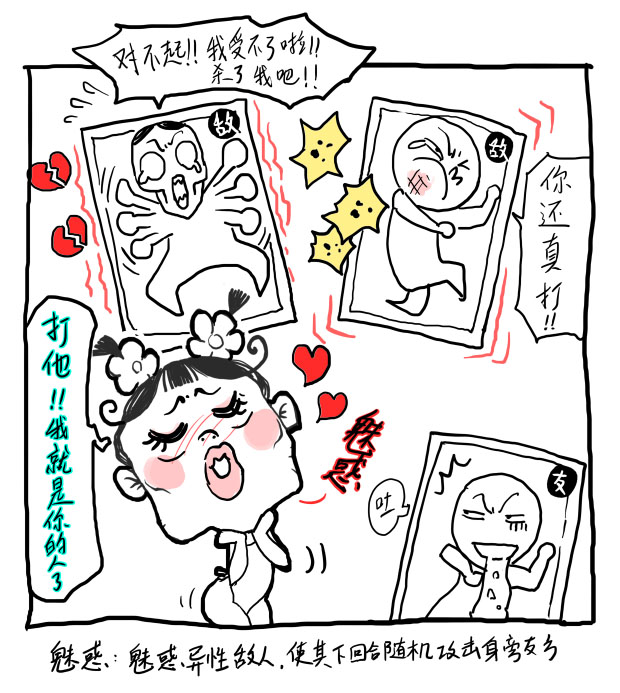 对不起!! 我受不了啦!!
杀了我吧!!
敌
敌
你还真打!!
打他!!我就是你的人了
魅惑
友
吐
魅惑: 魅惑异性敌人,使其下回合随机攻击身旁友方